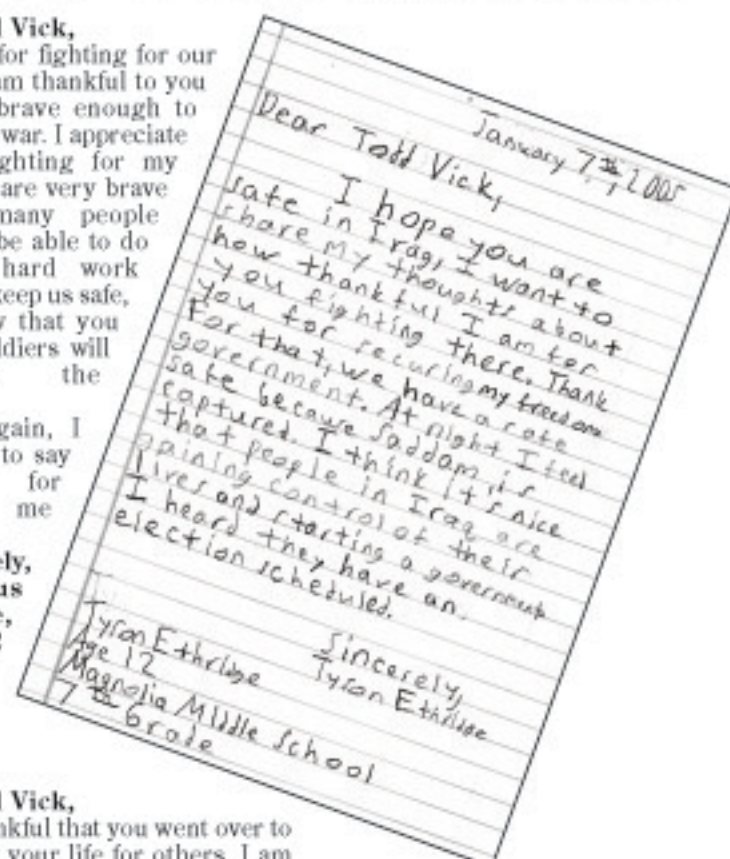 Vick,
for fighting for our
am thankful to you
brave enough to
war. I appreciate
ghting for my
are very brave
many people
be able to do
hard work
keep us safe,
that you
ldiers will
the
gain, I
to say
for
me
ely,
us
January 7th, 2005
Dear Todd Vick,
I hope you are
safe in Iraq, I want to
share my thoughts about
how thankful I am for
you fighting there. Thank
you for securing my freedom
For that, we have a safe
government. At night I feel
safe because Saddam is
captured. I think it's nice
that people in Iraq are
gaining control of their
lives and starting a government
I heard they have an
election scheduled.
Sincerely,
Tyson Ethridge
Tyson Ethridge
Age 12
Magnolia Middle School
7th Grade
Vick,
nkful that you went over to
your life for others. I am